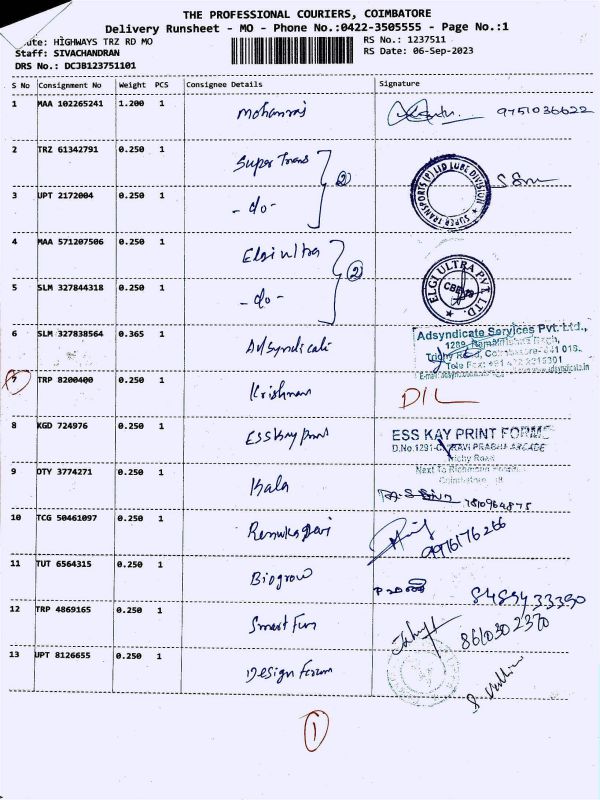 THE PROFESSIONAL COURIERS, COIMBATORE
Delivery Runsheet - MO - Phone No.:0422-3505555 - Page No.:1
ute: HIGHWAYS TRZ RD MO
RS No.: 1237511
Staff: SIVACHANDRAN
RS Date: 06-Sep-2023
DRS No.: DCJB123751101
S No Consignment No Weight PCS Consignee Details Signature
1 MAA 102265241 1.200 1 Mohanraj 9751036622
2 TRZ 61342791 0.250 1 Super Trans
SUPER TRANSPORTS (P) LTD LUBE DIVISION
3 UPT 2172004 0.250 1 - do - 2
4 MAA 571207506 0.250 1 Elgi ultra
ELGI ULTRA PVT. LTD.
5 SLM 327844318 0.250 1 - do - 2
CBE-18
6 SLM 327838564 0.365 1 Adsyndicate
Adsyndicate Services Pvt. Ltd.,
Tele Fax: +91 422 2315301
TRP 8200400 0.250 1 Krishnan DIL
8 KGD 724976 0.250 1 Esskay print
ESS KAY PRINT FORMS
D.No.1291-C, RAVI PRABHA ARCADE
Trichy Road
9 OTY 3774271 0.250 1 Kala
Coimbatore - 18
7810964875
10 TCG 50461097 0.250 1 Renukadevi
9976176266
11 TUT 6564315 0.250 1 Biogrow
8489433390
12 TRP 4869165 0.250 1 Smart Fun
8610302370
13 UPT 8126655 0.250 1 Design Forum
1